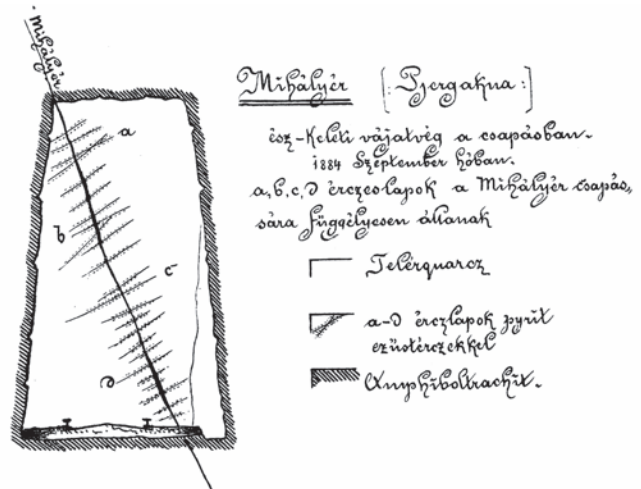 Mihályér
a
b
c
d
Mihályér [: Pzergakna :]
ész-Keleti vájatvég a csapásban.
1884 Szeptember hóban.
a, b, c, d érczeslapok a Mihályér csapás„
sára függélyesen állanak
Telérquarcz
a-d érczlapok pyrit
ezüstérczekkel
Amphiboltrachit.